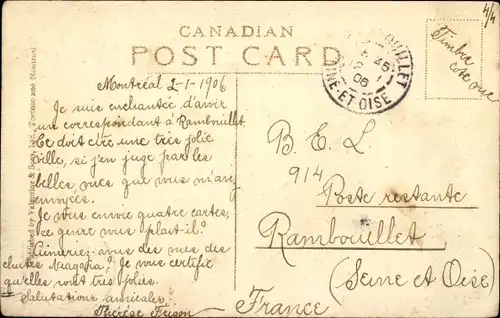 CANADIAN
POST CARD
4/4
Timbre
côté vue
RAMBOUILLET
5 45
06
SEINE-ET-OISE
Published by Valentine & Sons, Ltd., Toronto and Montreal
Montréal 2-1-1906
Je suis enchantée d'avoir
un correspondant à Rambouillet.
Ce doit être une très jolie
ville, si j'en juge par les
belles vues que vous m'avez
envoyées.
Je vous envoie quatre cartes;
ce genre vous plait-il?
Aimeriez-vous des vues des
chutes Niagara? Je vous certifie
qu'elles sont très jolies.
Salutations amicales.
Thérèse Frison
B. E. L.
914
Poste restante
Rambouillet
(Seine et Oise)
France